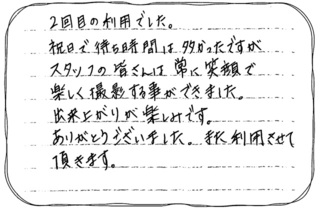 2回目の利用でした。
祝日で待ち時間は多かったですが
スタッフの皆さんは常に笑顔で
楽しく撮影する事ができました。
出来上がりが楽しみです。
ありがとうございました。また利用させて
頂きます。